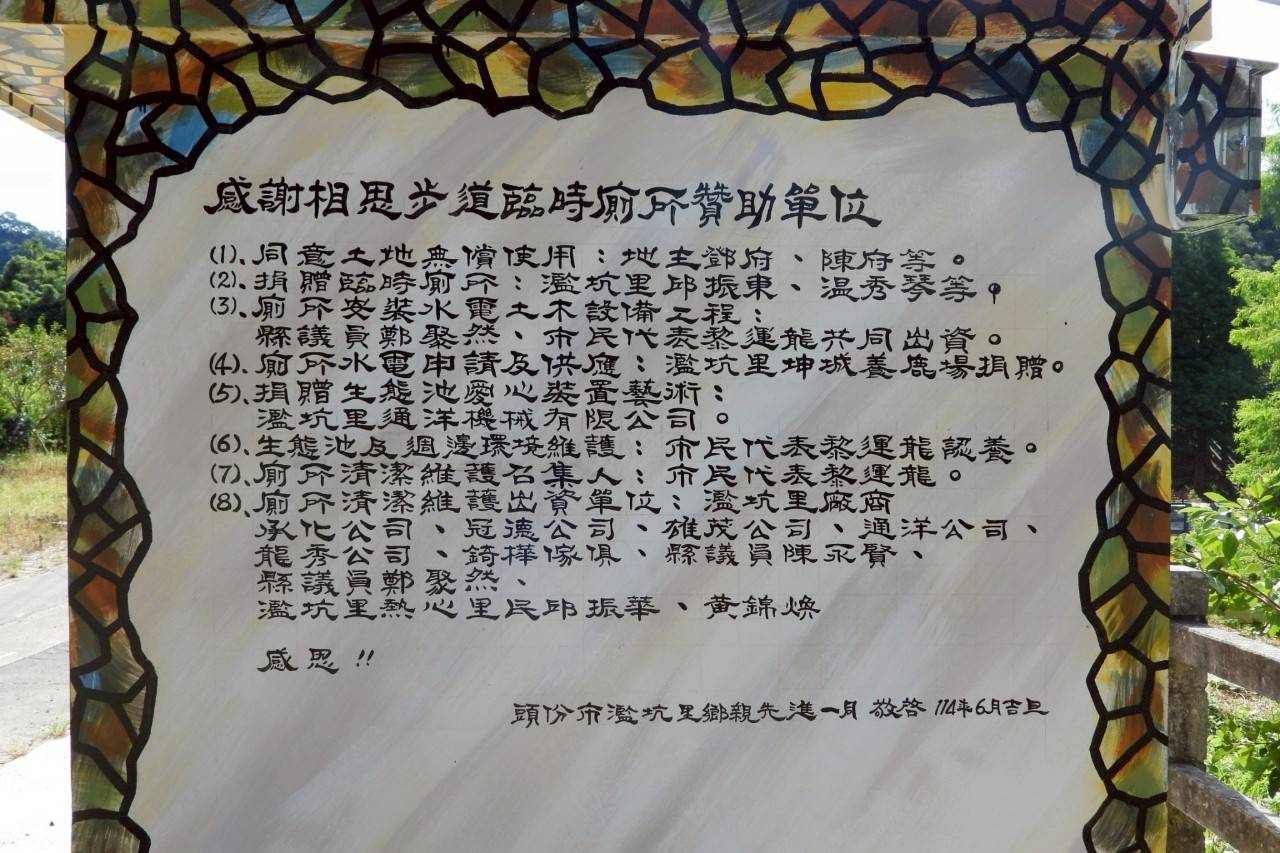 感謝相思步道臨時廁所贊助單位
(1)、同意土地無償使用：地主鄧府、陳府等。
(2)、捐贈臨時廁所：濫坑里邱振東、温秀琴等。
(3)、廁所安裝水電土木設備工程：
縣議員鄭聚然、市民代表黎運龍共同出資。
(4)、廁所水電申請及供應：濫坑里坤城養鹿場捐贈。
(5)、捐贈生態池愛心裝置藝術：
濫坑里通洋機械有限公司。
(6)、生態池及週邊環境維護：市民代表黎運龍認養。
(7)、廁所清潔維護召集人：市民代表黎運龍。
(8)、廁所清潔維護出資單位：濫坑里廠商
承化公司、冠德公司、雄茂公司、通洋公司、
龍秀公司、錡樺傢俱、縣議員陳永賢、
縣議員鄭聚然、
濫坑里熱心里民邱振華、黃錦煥
感恩!!
頭份市濫坑里鄉親先進一同 敬啓 114年6月吉旦